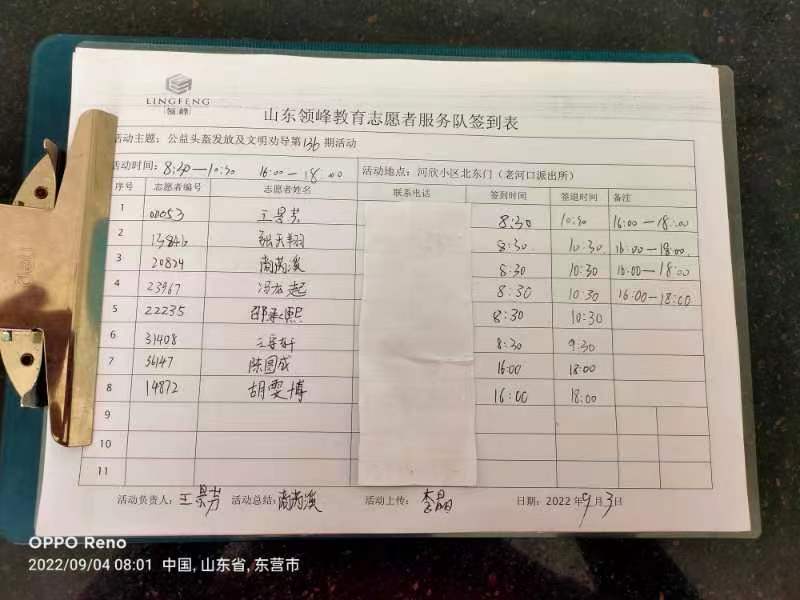 LINGFENG
领峰
山东领峰教育志愿者服务队签到表
活动主题：公益头盔发放及文明劝导第136期活动
活动时间：8:30—10:30 16:00—18:00 活动地点：河欣小区北东门（老河口派出所）
序号 志愿者编号 志愿者姓名 联系电话 签到时间 签退时间 备注
1 00053 王景芳 8:30 10:30 16:00—18:00
2 张天翔 8:30 10:30 16:00—18:00
3 20824 8:30 10:30 16:00—18:00
4 23967 8:30 10:30 16:00—18:00
5 22235 邵承熙 8:30 10:30
6 31408 8:30 9:30
7 36147 陈国成 16:00 18:00
8 14872 胡雯博 16:00 18:00
9
10
11
活动负责人：王景芳 活动总结： 活动上传：李晶 日期：2022年9月3日
OPPO Reno
2022/09/04 08:01 中国, 山东省, 东营市